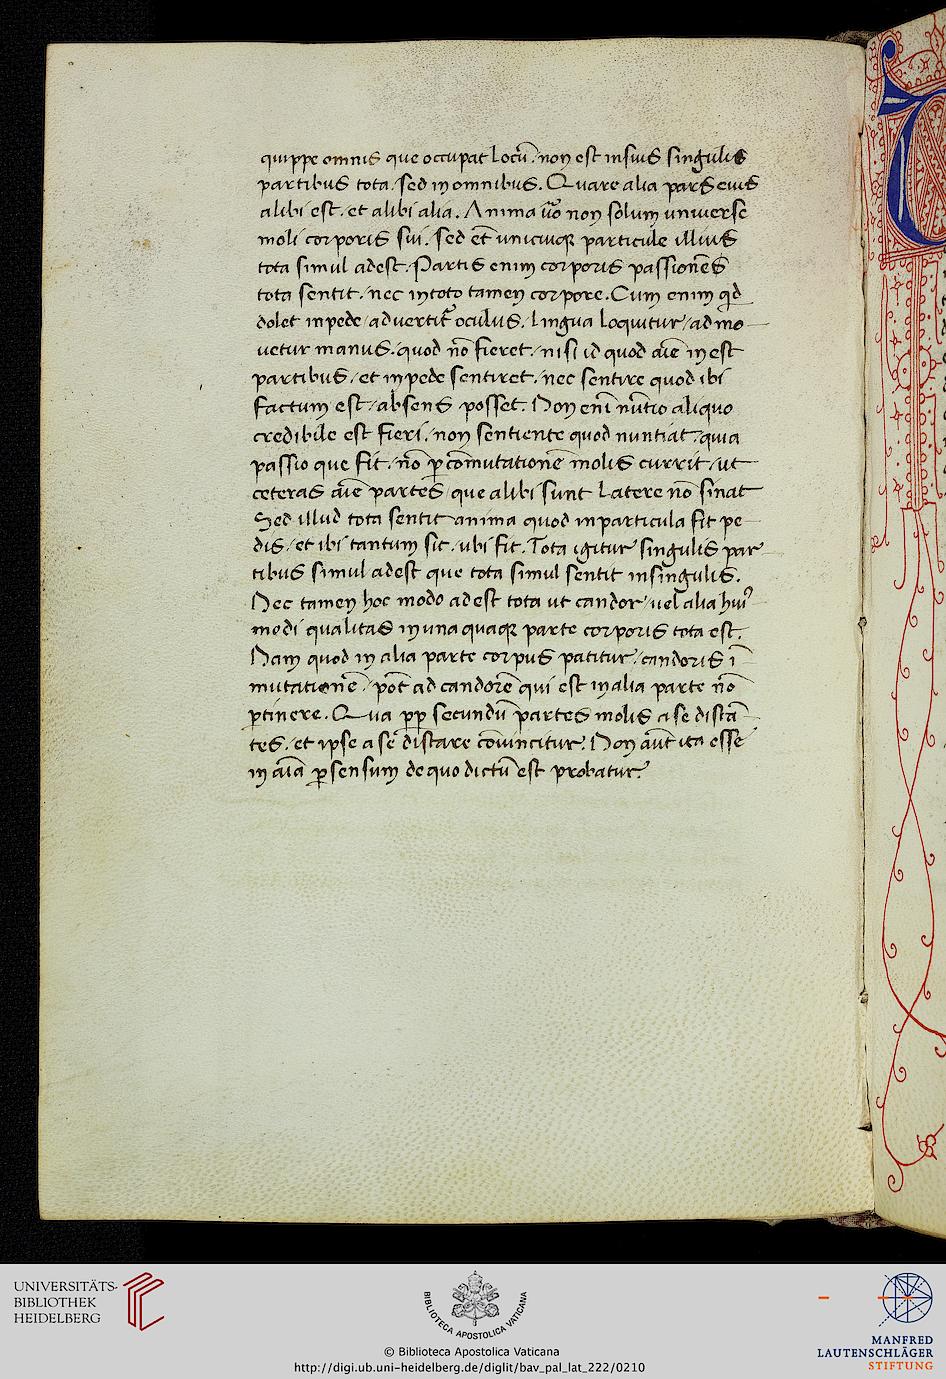 quippe omnis que occupat locū. non est insuis singulis
partibus tota. sed in omnibus. Quare alia pars eius
alibi est. et alibi alia. Anima ūo non solum universe
moli corporis sui. sed et̄ unicuiqꝫ particule illius
tota simul adest. Partis enim corporis passiones
tota sentit. nec intoto tamen corpore. Cum enim qͥd
dolet inpede / advertit᷑ oculus. lingua loquitur / admo
vetur manus. quod nō fieret. nisi id quod aīe inest
partibus / et inpede sentiret. nec sentire quod ibi
factum est / absens posset. Non enī nūtio aliquo
credibile est fieri. non sentiente quod nuntiat. quia
passio que fit. nō ꝑ cōmutationē molis currit / ut
ceteras aīe partes / que alibi sunt latere nō sinat
Sed illud tota sentit anima quod inparticula fit pe
dis / et ibi tantum sit. ubi fit. Tota igitur singulis par
tibus simul adest que tota simul sentit insingulis.
Nec tamen hoc modo adest tota ut candor / uel alia huiꝰ
modi qualitas inuna quaqꝫ parte corporis tota est.
Nam quod in alia parte corpus patitur / candoris ī
mutationē / pōt ad candorē qui est inalia parte nō
ꝑtinere. Qua ꝓp secundū partes molis a se distā
tes. et ipse a se distare convincitur. Non aūt ita esse
in aīa ꝑ sensum dequo dictū est probatur.
UNIVERSITÄTS-
BIBLIOTHEK
HEIDELBERG
BIBLIOTECA APOSTOLICA VATICANA
© Biblioteca Apostolica Vaticana
http://digi.ub.uni-heidelberg.de/diglit/bav_pal_lat_222/0210
MANFRED
LAUTENSCHLÄGER
STIFTUNG